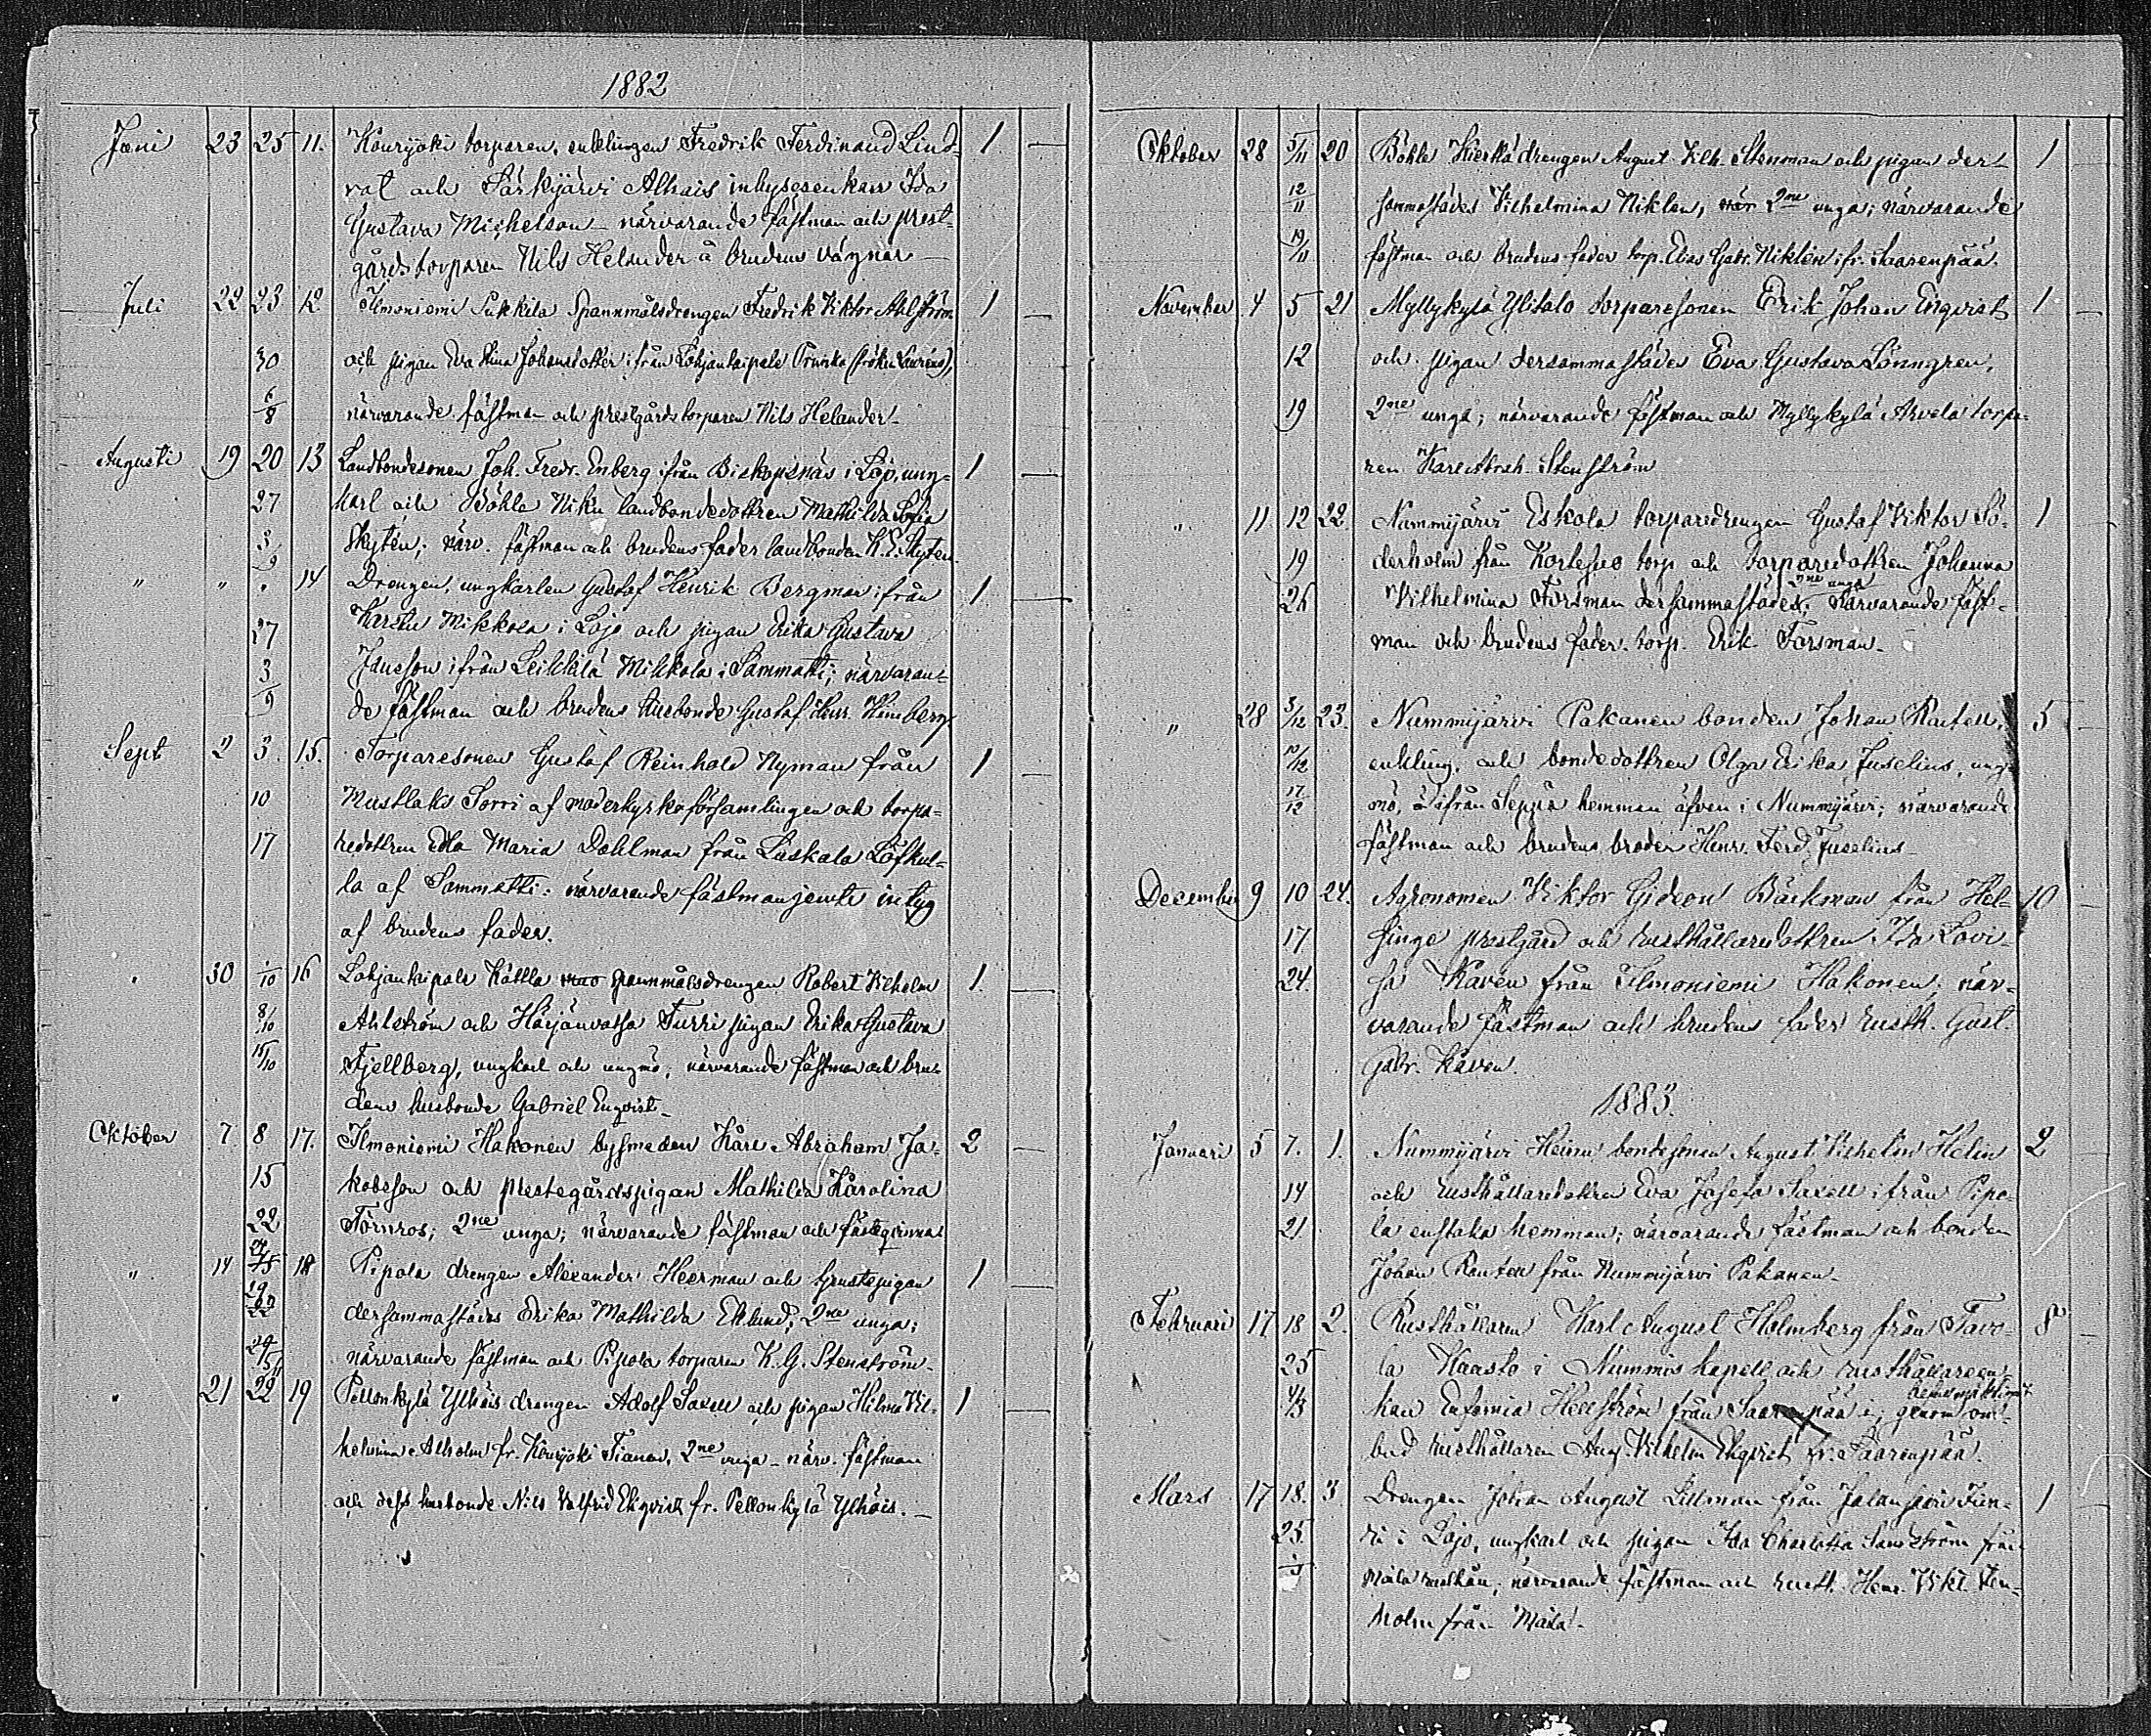 1882
Juni 23 25 11. Kouryoki torparen, enklingen Fredrik Ferdinand Lind- 1
rot och Särkijärvi Alhais inhysesenkan Ida
Gustava Michelson närvarande fästman och prest-
gårdstorparen Nils Helander å brudens vägnar
Juli 22 23 12. Ilmoniemi Pukkila Spannmålsdrengen Fredrik Viktor Ahlström 1
30 och pigan Eva Stina Johansdotter ifrån Lohjantaipale Prunka (fröken Laurens),
6/8 närvarande fästman och prestgårdstorparen Nils Helander
Augusti 19 20 13 Landbondesonen Joh. Fredr. Enberg från Biskopsnäs i Lojo, ung- 1
27 karl och Böhle Niku landbondedottren Mathilda Sofia
3/9 Skytén; närv. fästman och brudens fader landbonden K. E. Skytén
" " " 14 Drengen, ungkarlen Gustaf Henrik Bergman ifrån 1
27 Karstu Mikkola i Lojo och pigan Erika Gustava
3/9 Jansson ifrån Leikkilä Mikkola i Sammatti; närvaran-
de fästman och brudens husbonde Gustaf Henr. Heimberg
Sept 2 3. 15. Torparesonen Gustaf Reinhold Nyman från 1
10 Mustlaks Sorri af moderkyrkoförsamlingen och torpa-
17 redottren Edla Maria Dahlman från Luskala Löfkul-
la af Sammatti: närvarande fästman jemte intyg
af brudens fader.
" 30 1/10 16 Lohjantaipale Kottla spannmålsdrengen Robert Vilhelm 1.
8/10 Ahlström och Härjänvatsa Turri pigan Erika Gustava
15/10 Fjellberg, ungkarl och ungmö, närvarande fästman och bru-
dens husbonde Gabriel Enqvist
Oktober 7 8 17. Ilmoniemi Hakonen bysmeden Karl Abraham Ja- 2
15 kobsson och prestegårdspigan Mathilda Karolina
22 Törnros; 2ne unga; närvarande fästman och fästeqvinna
" 14 15 18 Pipola drengen Alexander Heerman och Grustspigan 1
29 22 dersammastädes Erika Mathilda Eklund; 2ne unga;
närvarande fästman och Pipola torparen K. G. Stenström
" 21 22 19 Pellonkylä Ylhäis drengen Adolf Saxell och pigan Hilma Vil- 1
helmina Alholm fr. Kouryoki Tianan, 2ne unga - närv. fästman
och dess husbonde Nils Valfrid Ekqvist fr. Pellonkylä Ylhäis.
Oktober 28 5/11 20 Böhle Kierkä drengen August Vilh. Stenman och pigan der- 1
12/11 sammastädes Vilhelmina Niklen, 2ne unga; närvarande
19/11 fästman och brudens fader torp. Elias Gabr. Niklén fr. Saarenpää.
November 4 5 21 Myllykylä Ylitalo torparesonen Erik Johan Enqvist 1
12 och pigan dersammastädes Eva Gustava Lönngren,
19 2ne unga; närvarande fästman och Myllykylä Arvela torpa-
ren Karl Abrah. Stenström
" 11 12 22. Nummijärvi Eskola torparedrengen Gustaf Viktor Sö- 1
19 derholm från Kortesuo torp och torparedottren Johanna
26 Vilhelmina Forsman dersammastädes, 2ne unga närvarande fäst-
man och brudens fader torp. Erik Forsman.
" 28 3/12 23. Nummijärvi Pakanen bonden Johan Rantell, 5
10/12 enkling, och bondedottren Olga Erika Juselius, ung-
17/12 mö, ifrån Seppä hemman äfven i Nummijärvi; närvarande
fästman och brudens broder Henr. Ferd. Juselius
December 9 10 24. Agronomen Viktor Gideon Bäckman från Hel- 10
17 singe prestgård och rusthållaredottren Ida Lovi-
24. sa Kavén från Ilmoniemi Hakonen; när-
varande fästman och brudens fader rusth. Gust.
Gabr. Kavén.
1883.
Januari 5 7. 1. Nummijärvi Heimo bondesonen August Vilhelm Helin 2
14 och rusthållaredottren Eva Josefa Saxell ifrån Pipo-
21 la enstaka hemman; närvarande fästman och bonden
Johan Rantell från Nummijärvi Pakanen
Februari 17 18 2. Rusthållaren Karl August Holmberg från Tavo- 8
25 la Kaasto i Nummis kapell och rusthållareen-
4/3 kan Eufemia Hellström från Saarenpää; genom om-
bud rusthållaren Aug. Vilhelm Ekqvist fr. Saarenpää.
Mars 17 18. 3. Drengen Johan August Lillman från Jalansaari Jun- 1
25. ti i Lojo, ungkarl och pigan Ida Charlotta Sandström från
Maila rusthåll; närvarande fästman och rusth. Henr. Vikt. Sten-
holm från Maila.